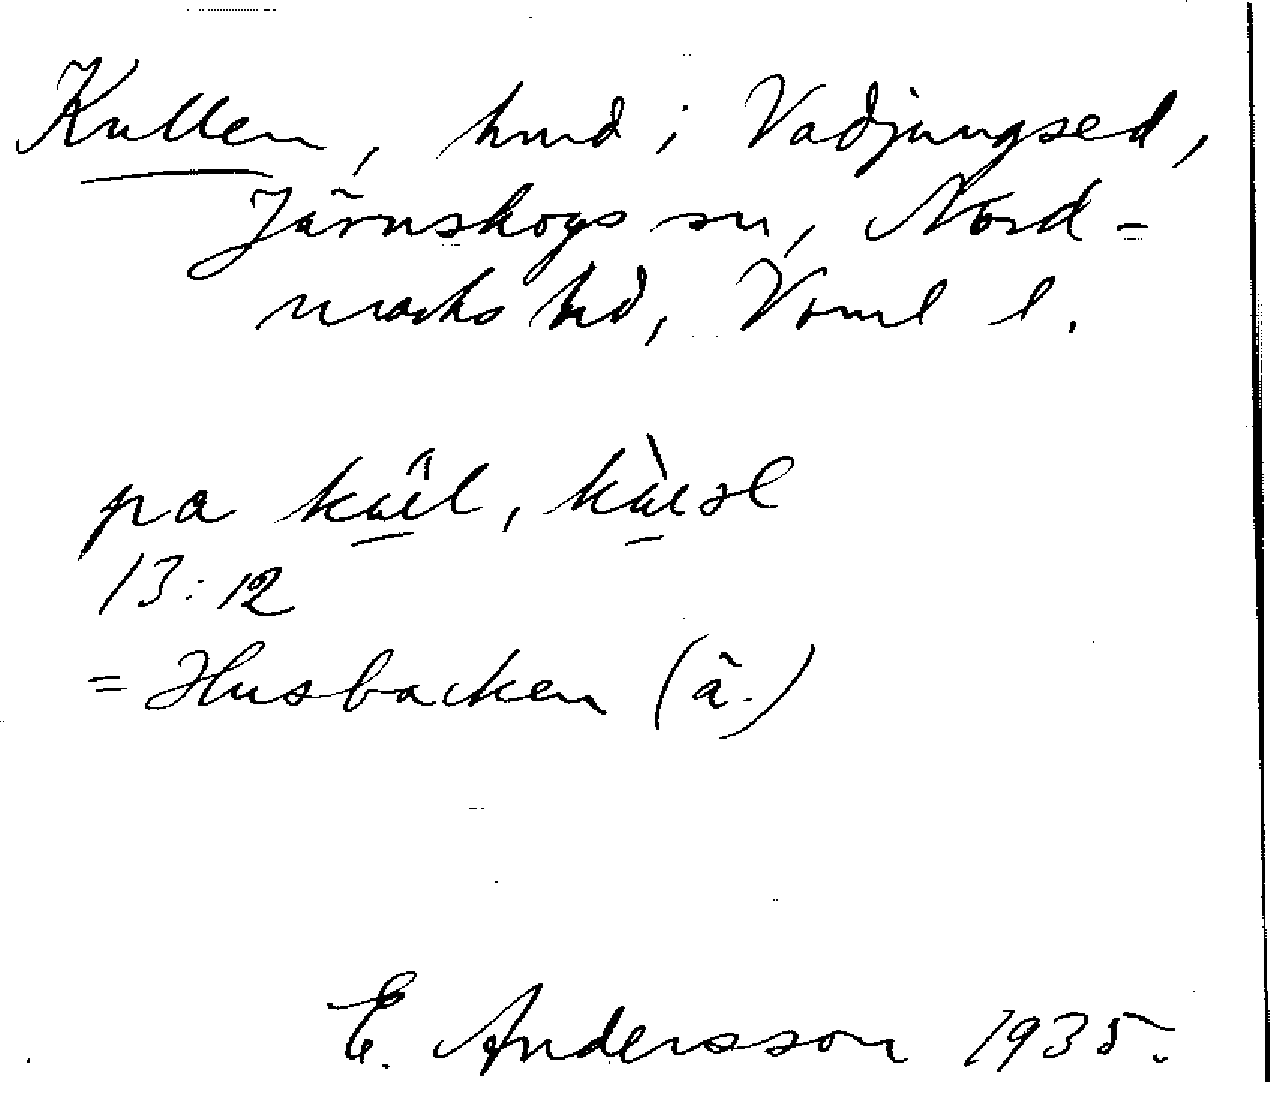 Kullen, hmd i Vadjungsed,
Järnskogs sn, Nord-
marks hd, Vrml l.
pa
13:12
= Husbacken (ä.)
E. Andersson 1935.